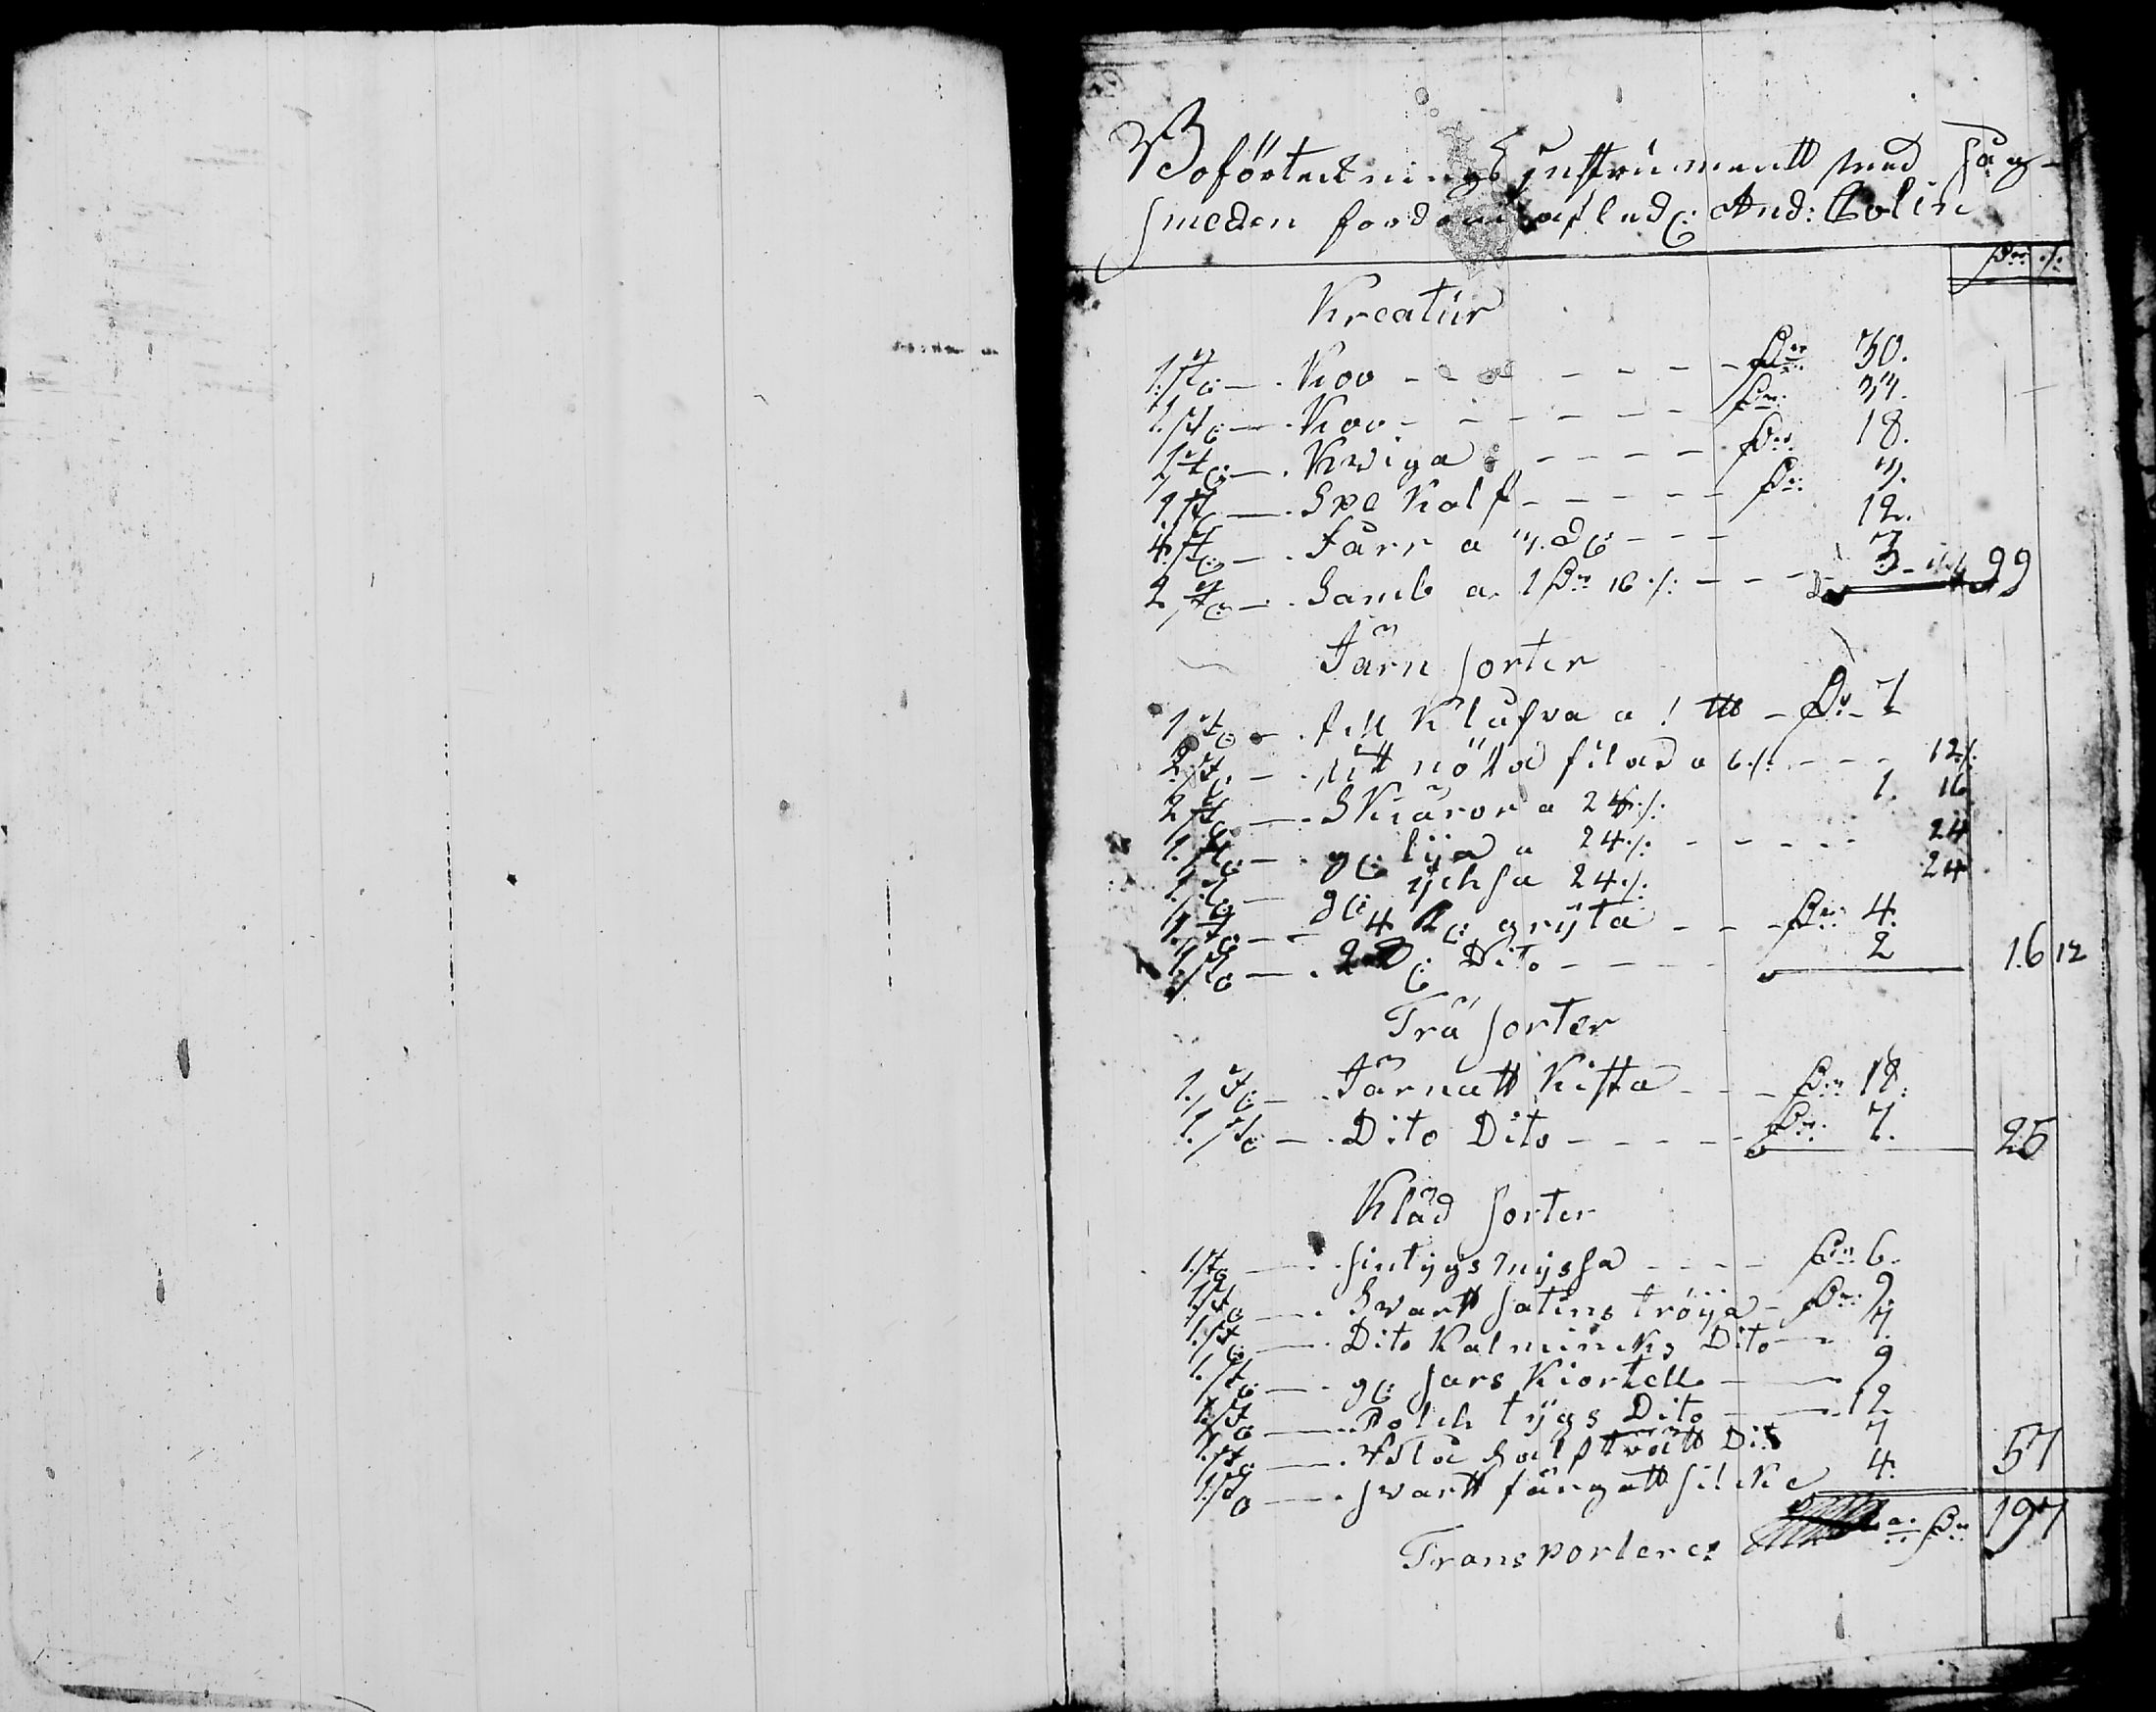 Boförtecknings Jnstrumentt med Såg-
smeden fordom afled: And: Bolin
Dr ./.
Kreatur
1. st: — . Koo - - - - - - Dr 30.
1. st: — . Koo - - - - - - Dr 37.
1 st: — . Kwiga - - - - Dr 18.
1. st: — . Spe Kalf - - - - - Dr 7.
4. st: — . Fårr a 3. d: - - - 12.
2 st: — . Lamb a. 1 Dr 16 ./. - - - - 3 - 99
Järn sorter
1 st: — . Klufva a - Dr 7
2. st: — . filar a 6./. - - - 12./.
2 st: — . Skiäror a 24./. 1. 16
1. st: — . g: lija a 24./. - - - - - 24
1. st: — g: ychsa 24./. 24
1. st: — - 4 K: gryta - - - Dr 4.
1. st: — . 2 D: Dito - - - - 2 16 12
Trä sorter
1. st: — . Järnatt Kista - - - Dr 18.
1. st: — . Dito Dito - - - - - Dr 7. 25
Kläd sorter
1. st: — . sintygs myssa - - - - Dr 6.
1. st: — . Svartt satins tröija - Dr 9.
1. st: — . Dito Kalmincks Dito — 7.
1. st: — . g: sars Kiortell — 9
1. st: — . Polck tygs Dito — 12
1. st: — . Blå half Dito 7
1. st: — . svartt färgatt silke 4. 57
Transporteres Dr 197